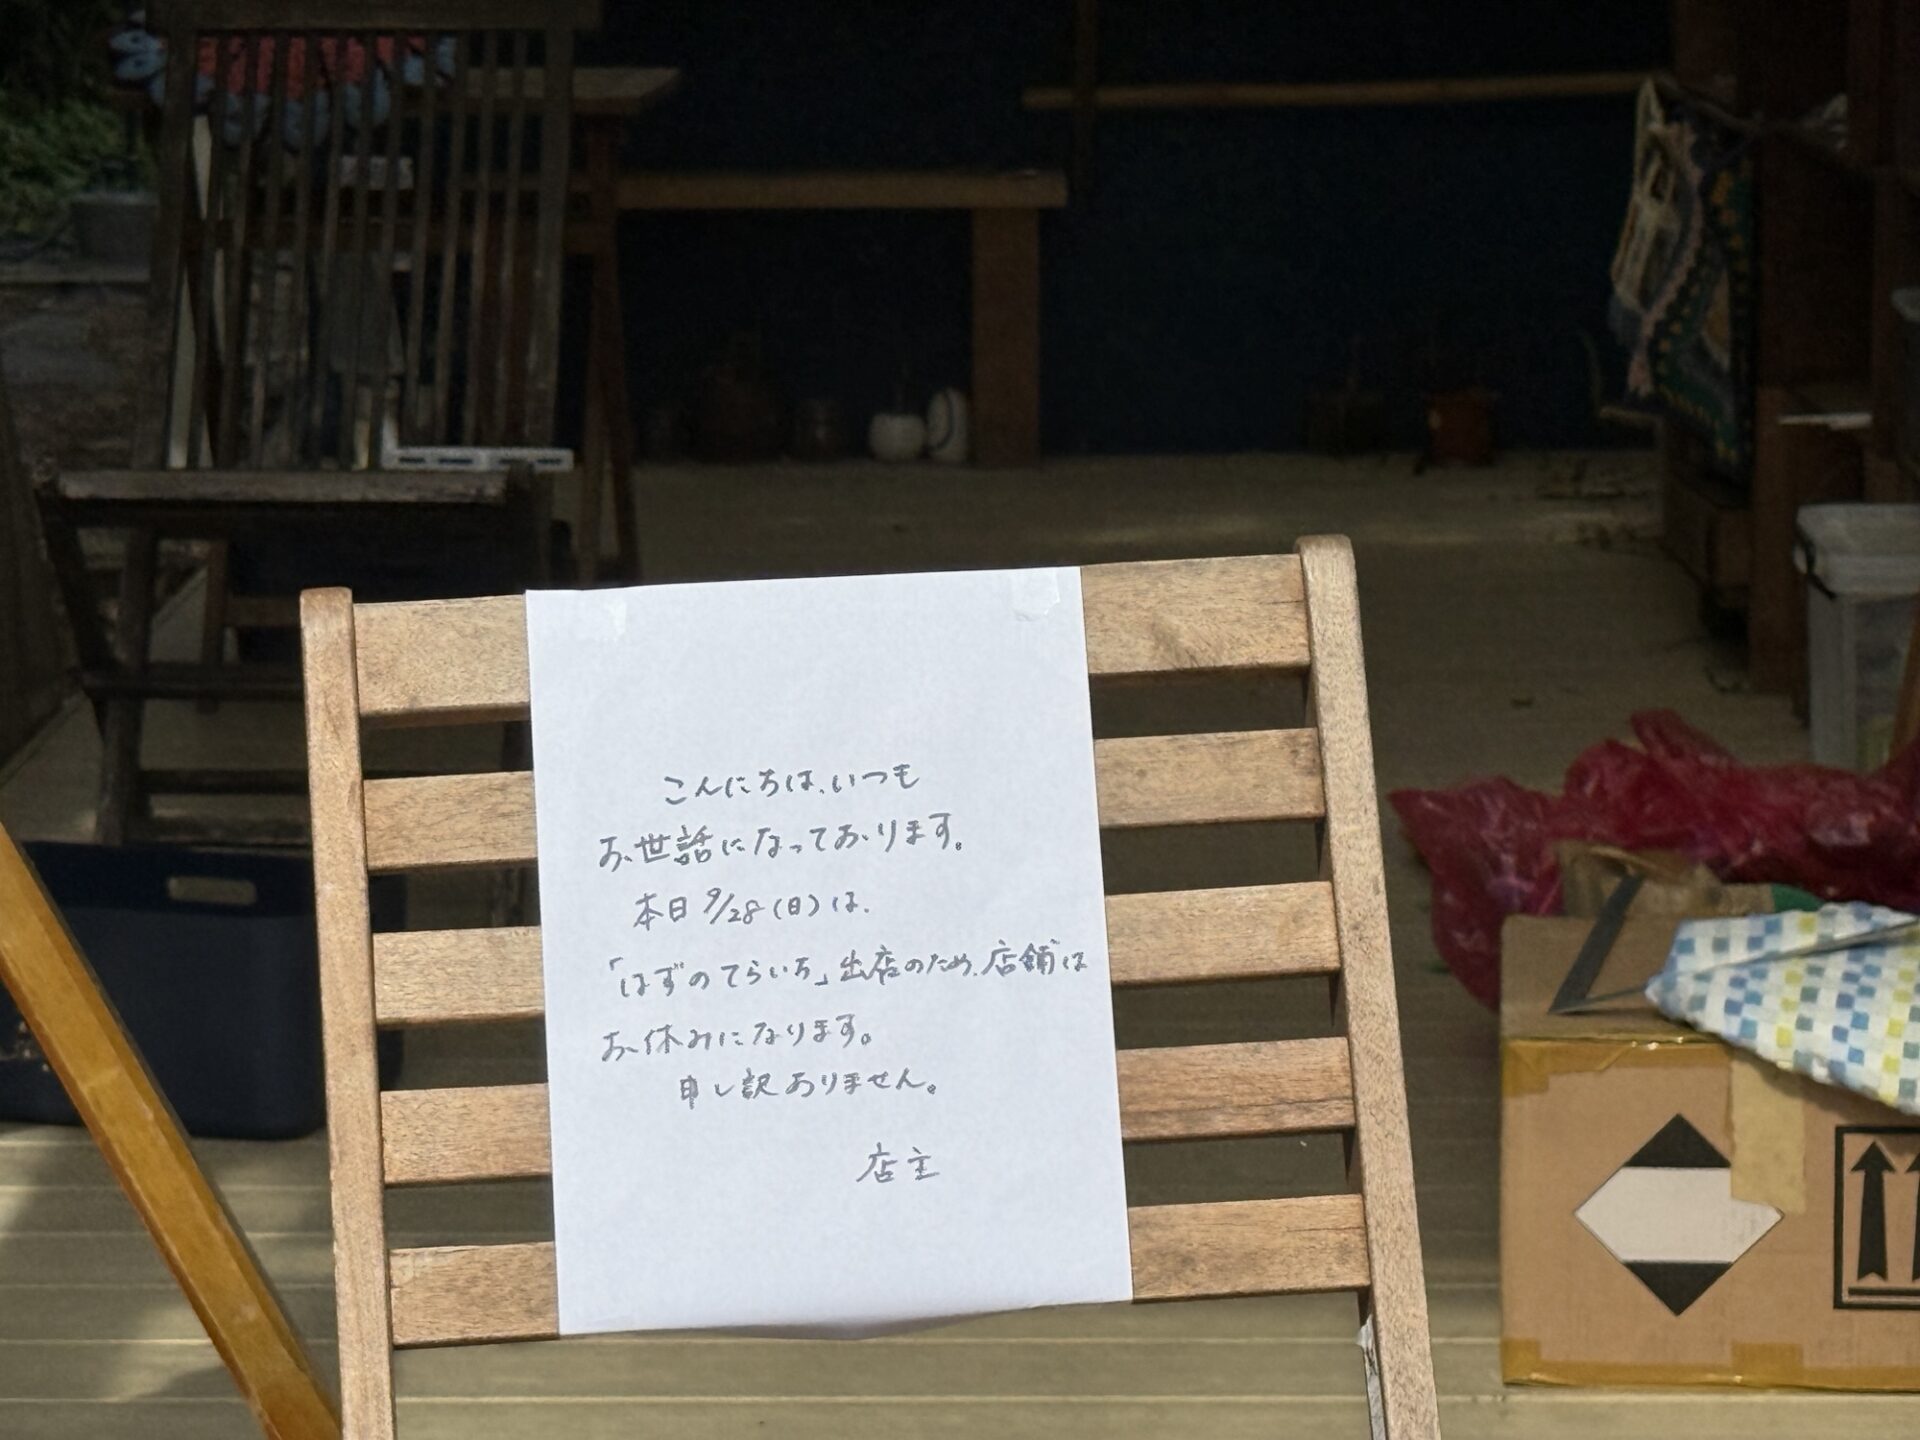 こんにちは、いつも
お世話になっております。
本日9/28(日)は、
「はずのてらいち」出店のため、店舗は
お休みになります。
申し訳ありません。
店主